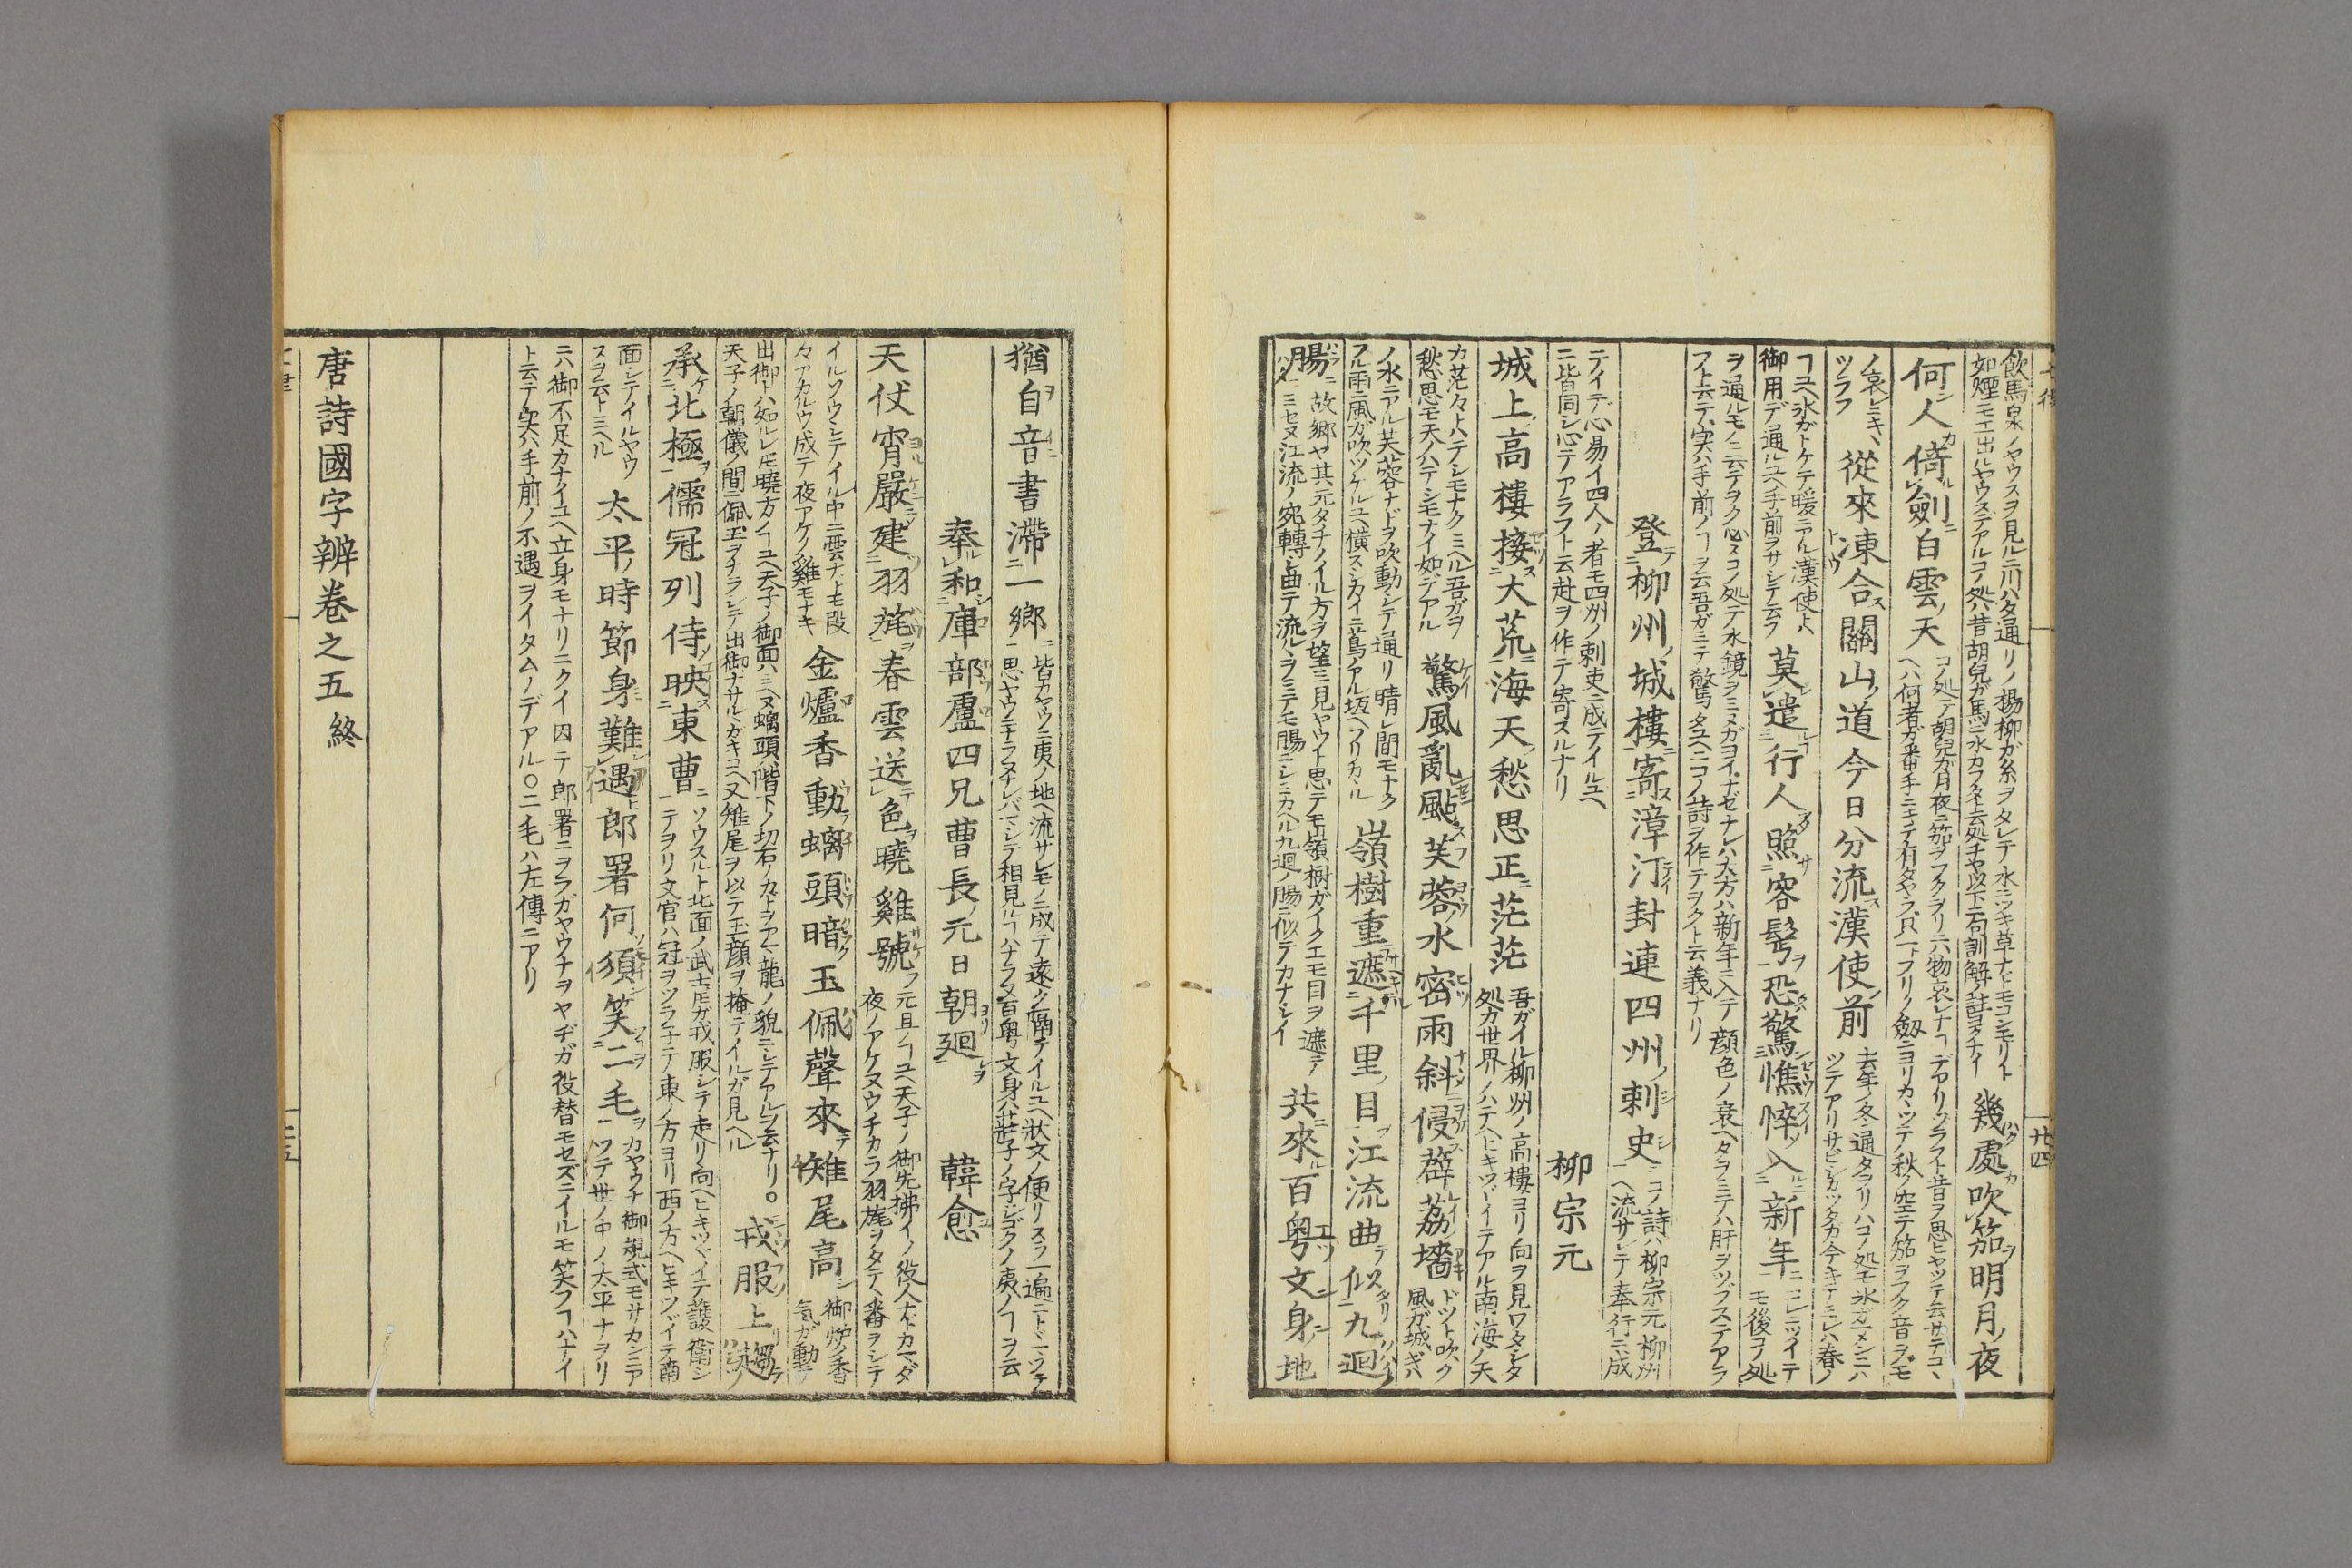 飲馬泉ノヤウスヲ見ルニ川バタ通リノ楊柳ガ糸ヲタレテ水ニツキ草ナドモコンモリト
如煙ニモエ出ルヤウスデアルコノ処ハ昔胡兒ガ馬ニ水カフタト云処ヂヤ以下二句訓解ノ註ヨクナイ
幾處吹笳明月ノ夜
何人倚劍白雲ノ天
コノ処デ胡兒ガ月夜ニ笳ヲフクヲリニハ物哀レナコデアリツラフト昔ヲ思ヒヤツテ云サテコヽ
ヘハ何者ガ番手ニキテ有タヤラ只一トフリノ劔ニヨリカヽツテ秋ノ空デ笳ヲフク音ヲモ
ノ哀レニキヽ
ツラフ
從來凍合關山ノ道今日分流漢使ノ前
去年ノ冬通タヲリハコノ処モ氷ガメンニハ
ツテアリサビシカツタカ今キテミレハ春ノ
コユヘ氷ガトケテ暖ニアル漢使ト
御用デ通ルユヘ手前ヲサシテ云フ
莫遣行人照容鬢恐驚憔悴入新年
コレニツイテ
モ後コノ処
ヲ通ルモノニ云テヲク必スコノ処デ水鏡ヲミヌガヨイナゼナレハ大方ハ新年ニ入テ顔色ノ衰ヘタヲミテハ肝ヲツブステアラ
フト云テ実ハ手前ノコヲ云吾ガミテ驚タユヘニコノ詩ヲ作テヲクト云義ナリ
登柳州ノ城樓寄漳汀封連四州ノ刺史
コノ詩ハ柳宗元柳州
ヘ流サレテ奉行ニ成
テイテ心易イ四人ノ者モ四州ノ刺吏ニ成テイルユヘ
ニ皆同シ心デアラフト云赴ヲ作テ寄スルナリ
柳宗元
城上高樓接大荒海天愁思正茫茫
吾ガイル柳州ノ高樓ヨリ向ヲ見ワタシタ
処カ世界ノハテヘヒキツヾイテアル南海ノ天
カ茫々トハテシモナクミヘル吾ガヲ
愁思モ天ノハテシモナイ如デアル
驚風亂颭芙蓉ノ水密雨斜侵薜荔墻
ドツト吹ク
風ガ城ギハ
ノ水ニアル芙蓉ナドヲ吹動シテ通リ晴レ間モナク
フル雨ニ風ガ吹ツケルユヘ橫スシカイニ蔦ノアル垣ヘフリカヽル
嶺樹重遮千里ノ目江流曲似九迴
腸
故郷ヤ其元タチノイル方ヲ望ミ見ヤウト思テモ領樹ガイクエモ目ヲ遮テ
ミセヌ江流ノ宛轉ト曲テ流ルヽヲミテモ腸ニシミカヘル九廻ノ腸ニ似テカナシイ
共來百粤文身ノ地
猶自音書滯一鄉
皆カヤウニ夷ノ地ヘ流サレモノニ成テ遠ク隔テイルユヘ狀文ノ便リスラ一遍ニトヾマツテ
思ヤウニナラヌナレバマシテ相見ルコハナラヌ百粤文身ハ莊子ノ字ジゴクノ夷ノコヲ云
奉和庫部盧四兄曹長ノ元日朝廻 韓愈
天仗宵嚴建羽旄春雲送色曉雞號
元旦ノコユヘ天子ノ御先拂イノ役人ナドカマダ
夜ノアケヌウチカラ羽旄ヲタテヽ番ヲシテ
イルソウシテイル中ニ雲ナトモ段
々アカルウ成テ夜アケノ雞モナキ
金爐香動螭頭暗玉佩聲來雉尾高
御炉ノ香
気ガ動テ
出御トハ知ルレ𪜈曉方ノコユヘ天子ノ御面ハミヘヌ螭頭ノ階下ノ切石ノカトヲアマ龍ノ貌ニシテアルヲ云ナリ○
天子ノ朝儀ノ間ニ佩玉ヲナラシテ出御ナサルヽガキコヘ又雉尾ヲ以テ玉顔ヲ掩テイルガ見ヘル
戎服上趨
承北極儒冠列侍映東曹
ソウスルト北面ノ武士𪜈ガ戎服シテ走リ向ヘヒキツヾイテ護衛シ
テヲリ文官ハ冠ヲツラ子テ東ノ方ヨリ西ノ方ヘヒキツヾイテ南
面シテイルヤウ
スヲ云トミヘル
太平ノ時節身難遇郎署何須笑二毛
カヤウナ御規式モサカンニア
ツテ世ノ中ノ太平ナヲリ
ニハ御不足カナイユヘ立身モナリニクイ因テ郎署ニヲラガヤウナヲヤヂガ役替モセズニイルモ笑フコハナイ
ト云テ実ハ手前ノ不遇ヲイタムノデアル○二毛ハ左傳ニアリ
唐詩國字辨卷之五終